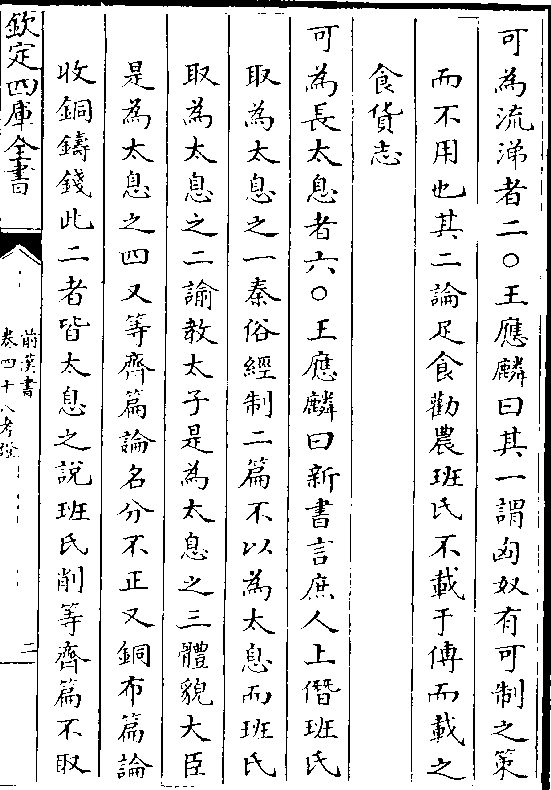 可為流涕者二○王應麟曰其一謂匈奴有可制之策
而不用也其二論足食勸農班氏不載于傳而載之
食貨志
可為長太息者六○王應麟曰新書言庶人上僭班氏
取為太息之一秦俗經制二篇不以為太息而班氏
取為太息之二諭教太子是為太息之三體貌大臣
是為太息之四又等齊篇論名分不正又銅布篇論
收銅鑄錢此二者皆太息之說班氏削等齊篇不取
欽定四庫全書
前漢書
卷四十八考證
二